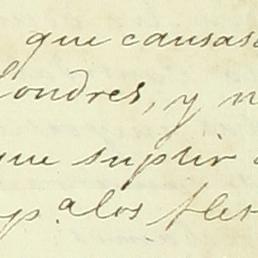 que causas
Londres, y n
que suplir
p.a los flet